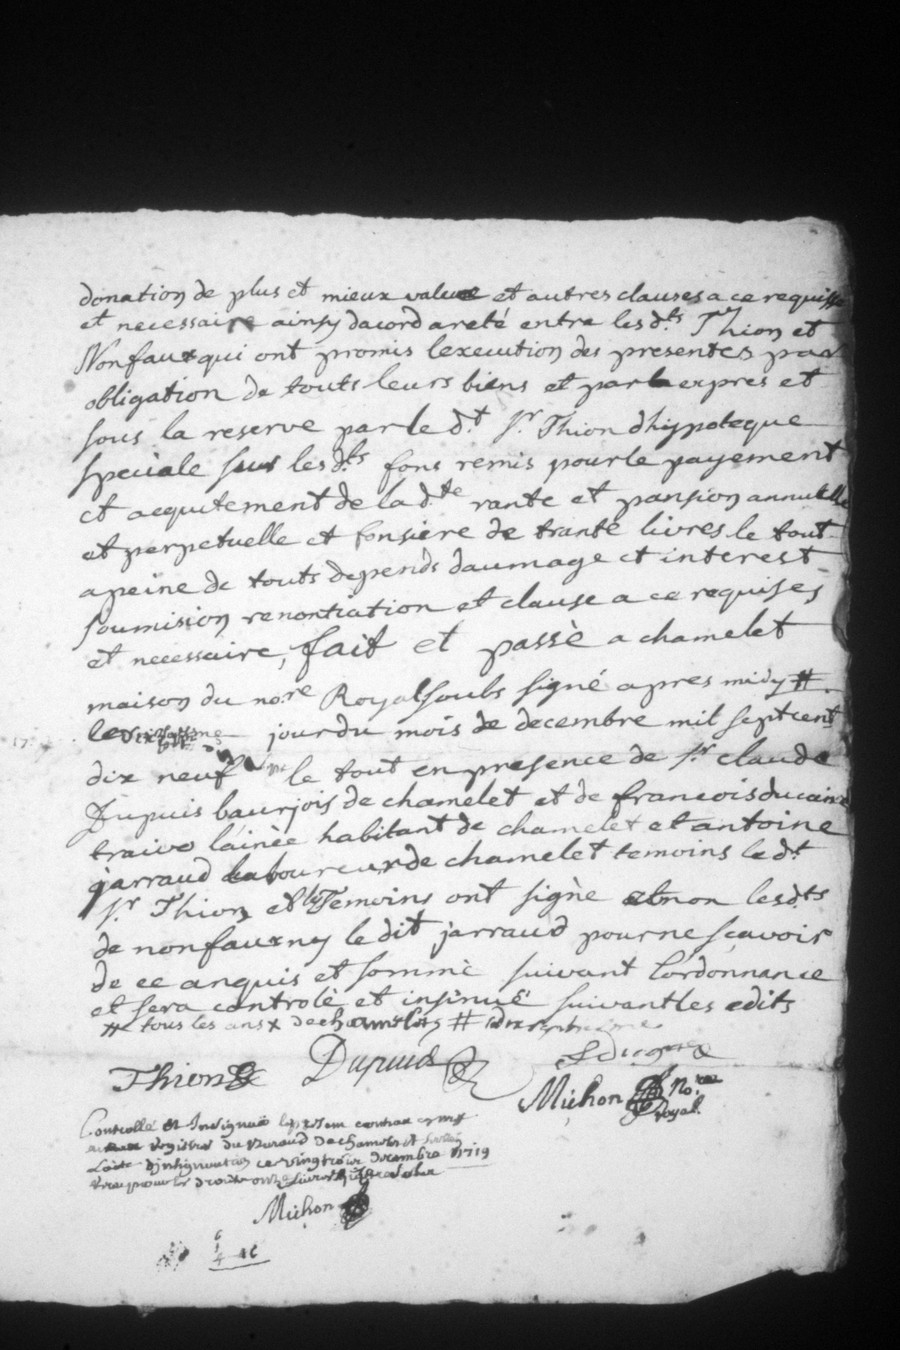 donation de plus et mieux value et autres clauses a ce requisse
et necessaire ainsy dacord areté entre les d.ts Thion et
Nonfaux qui ont promis lexecution des presentes par
obligation de touts leurs biens et par expres et
sous la reserve par le d.t s.r Thion dhypoteque
speciale sur les d.ts fons remis pour le payement
et acquitement de la d.te rante et pansion annuelle
et perpetuelle et fonsiere de trante livres le tout
a peine de touts depends daumage et interest
soumision renontiation et clause a ce requises
et necessaire, fait et passè a chamelet
maison du no.re Royal soubs signé apres midy #
le jour du mois de decembre mil sept cent
dix neuf le tout en presence de s.r claude
Dupuis baurjois de chamelet et de francois
lainèe habitant de chamelet et antoine
jarraud laboureur de chamelet temoins le d.t
s.r Thion et les Temoins ont signè et non les d.ts
de nonfaux ny le dit jarraud pour ne sçavoir
de ce anquis et sommè suivant lordonnance
et sera controlè et insinuè suivant les edits
# tous les ans #
Thion Dupuis
Michon No.re
Royal.
Controllé et Insignué le present contrax
registre du Bureaud de chamelet
ce vingt decembre 1719
Michon